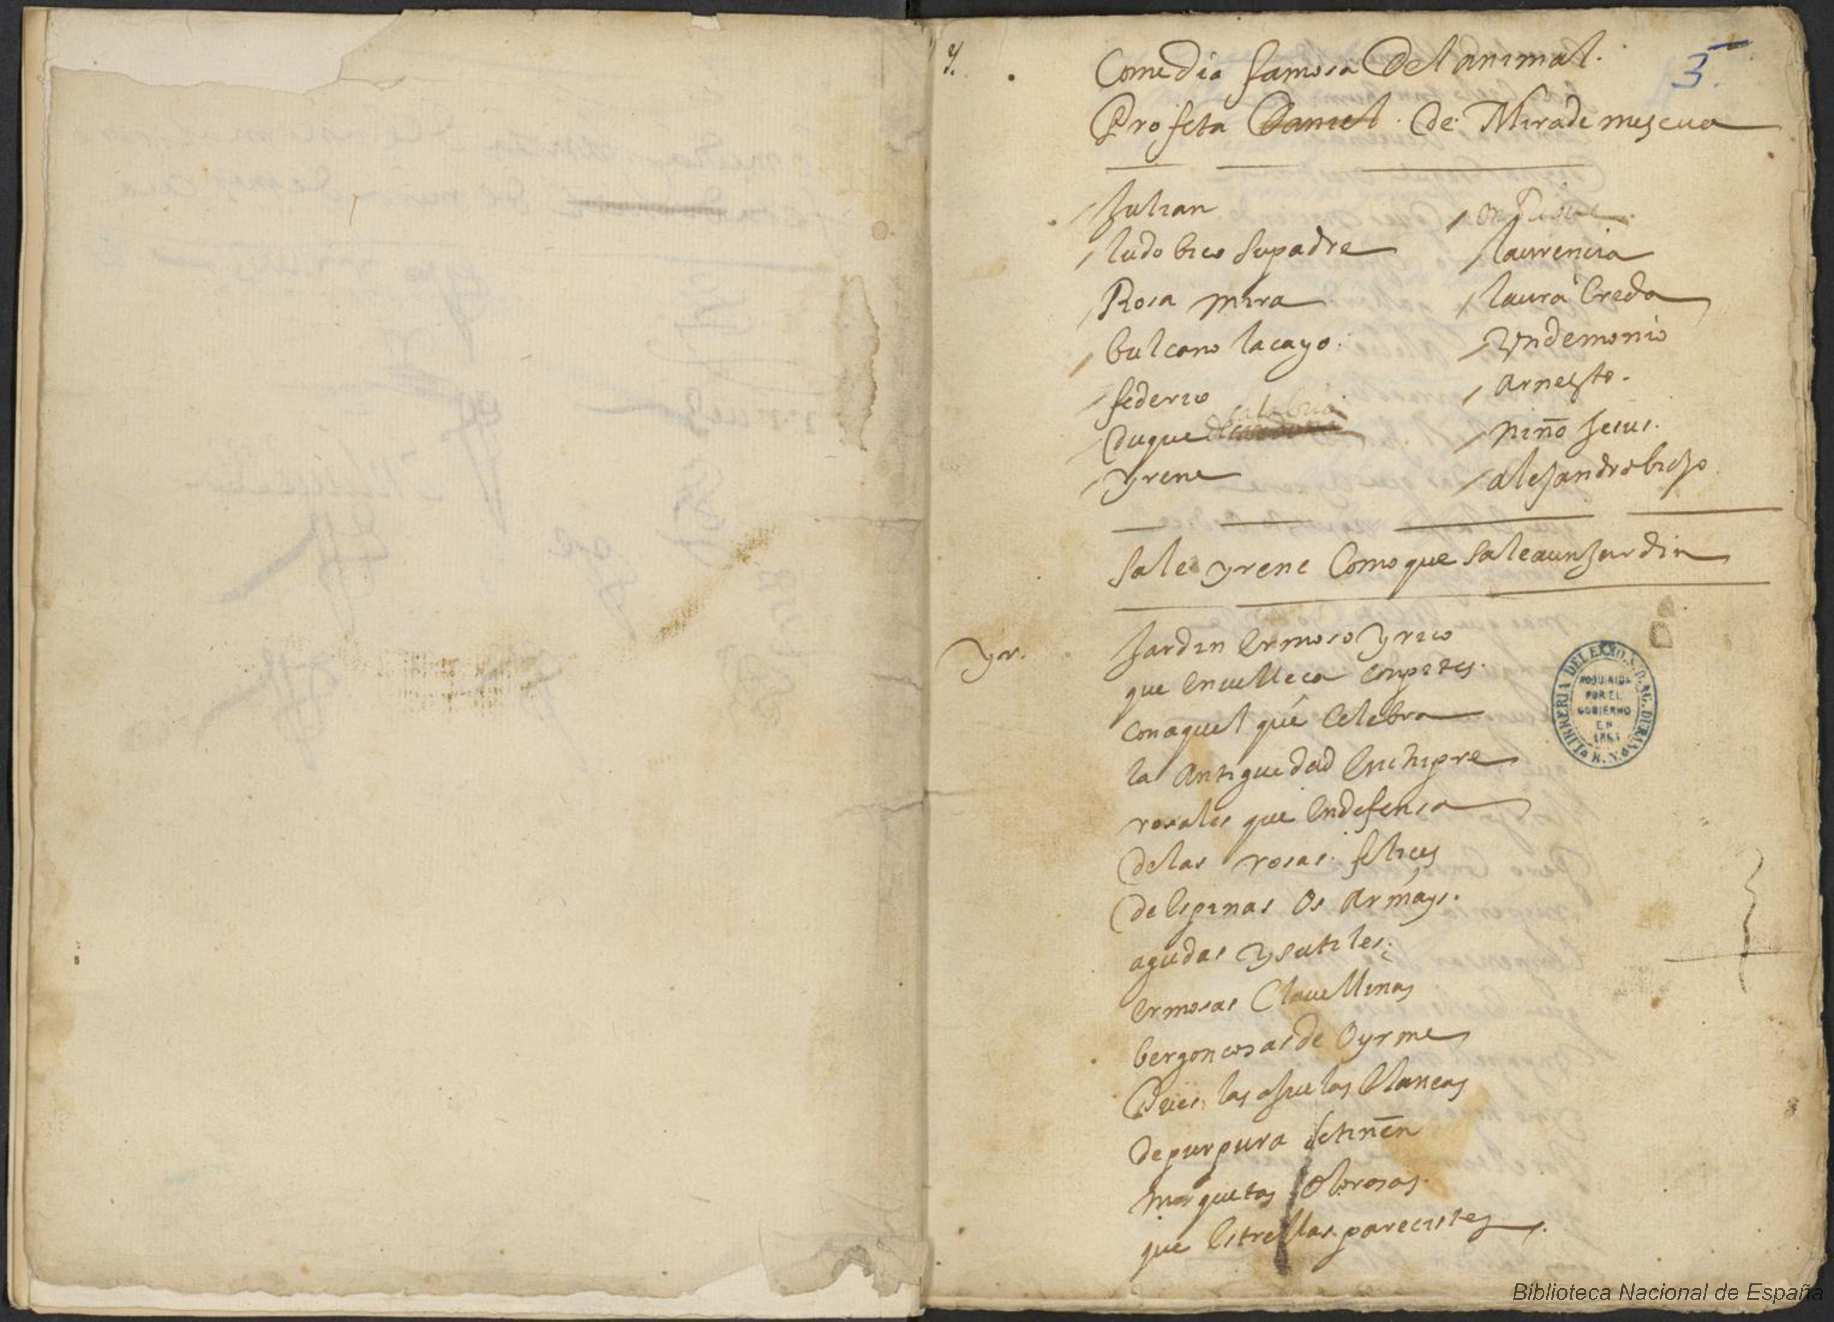 Y.
3
Comedia famosa Del animal.
Profeta Daniel. De Mirademescua
Julian
ludobico supadre
Rosa mira
bulcano lacayo.
federico
Duque de calabria
Yrene
enRique
laurencia
laura Creda
Undemonio
arnesto.
niño Jesus.
alejandro biejo
Sale yrene Como que saleaunjardin
yr. Jardin ermoso y rico
que enuelleca conpites.
conaquel que Celebra
la antiguedad enchipre
rosales que endefensa
delas rosas. felices
de espinas os armays.
agudas y sutiles.
ermosas Clauellinas
bergonçosas de oyrme
Pues las ojuelas blancas
depurpura se tiñen
mosquetas olorosas.
que estrellas parecistes.
LIBRERIA DEL EXMO. S. D. AG. DURAN
ADQUIRIDA
POR EL
GOBIERNO
EN
1863
B. N.
Biblioteca Nacional de España